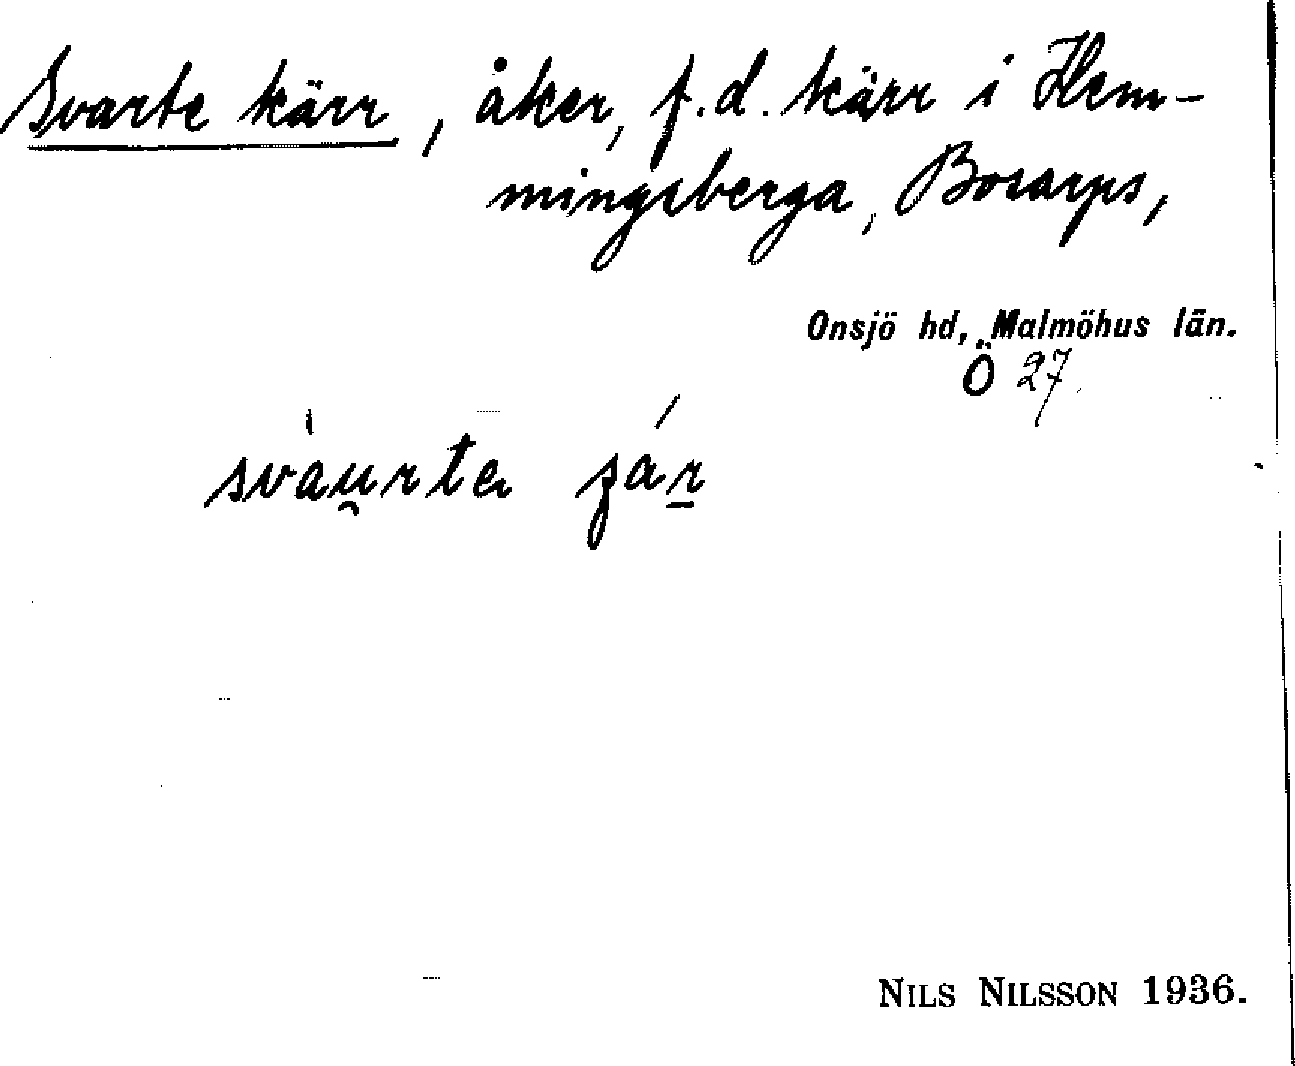 Svarte kärr, åker, f.d. kärr i Hem-
mingsberga, Bosarps,
Onsjö hd, Malmöhus län.
Ö 27.
svau̯rte
NILS NILSSON 1936.